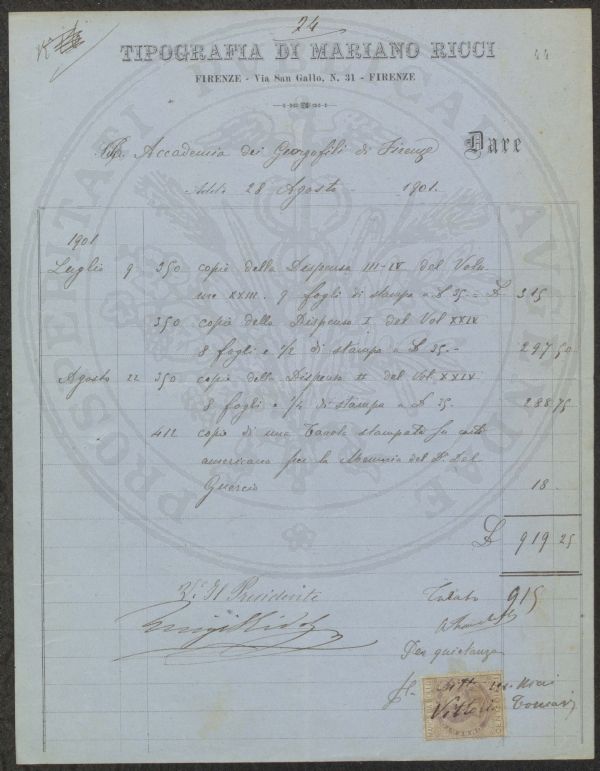 24
TIPOGRAFIA DI MARIANO RICCI
44
FIRENZE - Via San Gallo, N. 31 - FIRENZE
R. Accademia dei Georgofili di Firenze Dare
Addì 28 Agosto 1901.
1901
Luglio 9 350 copie della Dispensa III-IV del Volu
me XXIII. 9 fogli di stampa a £ 35 = £ 315
350 copie della Dispensa I del Vol XXIV
8 fogli e 1/2 di stampa a £ 35.- 297 50
Agosto 22 350 copie della Dispensa II del Vol. XXIV
8 fogli e 1/4 di stampa a £ 35. 288 75
412 copie di una Tavola stampata su carta
americana per la Memoria del Dr. Del
Guercio 18 -
£ 919 25
Vo Il Presidente
Saldato 915
Per quietanza
Ditta Ricci
Vittorio
PROSPERITATI PUBLICAE AUGENDAE